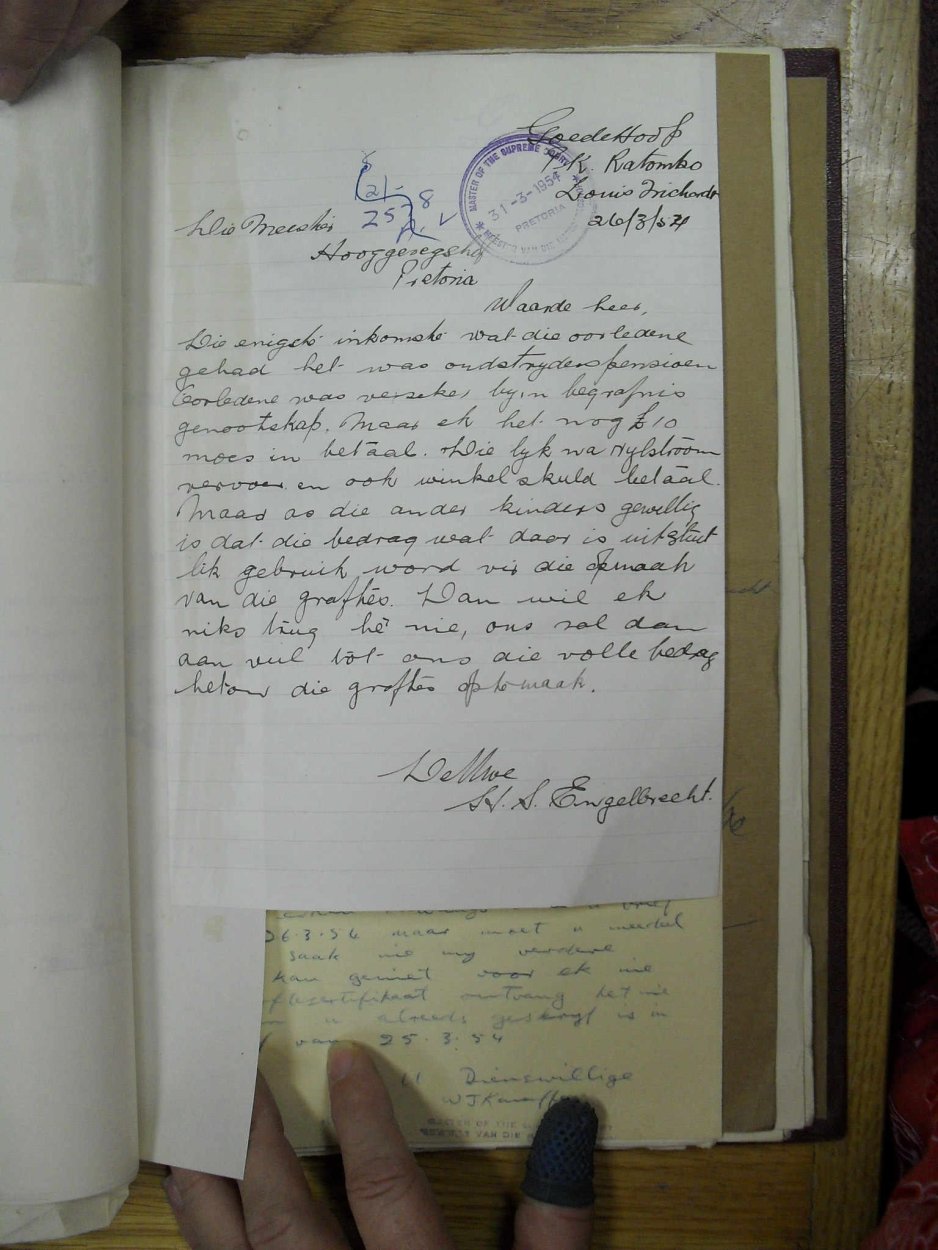 GoedeHoop
P/K. Ratombo
Louis Trichardt
26/3/54
MASTER OF THE SUPREME COURT
31-3-1954
PRETORIA
MEESTER VAN DIE
25
8
Die Meester
Hooggeregshof
Pretoria
Waarde heer,
Die enigste inkomste wat die oorledene
gehad het was oudstryderspensioen
Oorledene was verseker by'n begrafnis
genootskap. Maar ek het nog £10
moes in betaal. Die lyk na Nylstroom
vervoer en ook winkel skuld betaal.
Maar as die ander kinders gewillig
is dat die bedrag wat daar is uitsluit
lik gebruik word vir die opmaak
van die graftes. Dan wil ek
niks trug hê nie, ons sal dan
aan vul tot ons die volle bedrag
het om die graftes op te maak.
H. S. Engelbrecht.
u brief
26.3.54 maar moet u meedeel
saak nie my verdere
kan geniet voor ek nie
sertifikaat ontvang het nie
u alreeds geskryf is in
van 25.3.54
U Dienswillige
MASTER OF THE
VAN DIE